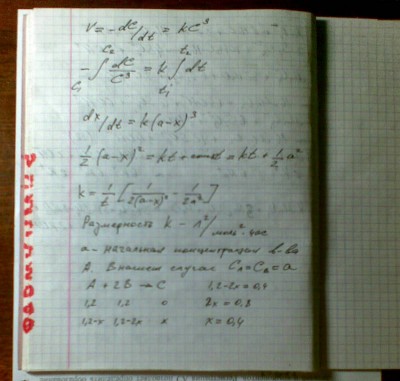 V = -dC/dt = kC³
C₂ t₂
-∫ dC/C³ = k ∫ dt
C₁ t₁
dx/dt = k(a-x)³
1/2 (a-x)² = kt + const = kt + 1/2 a²
k = 1/t [ 1/2(a-x)² - 1/2a² ]
Размерность k - л²/моль²·час
a - начальная концентрация в-ва
А. В нашем случае C_A = C_B = a
A + 2B → C 1,2-2x = 0,4
1,2 1,2 0 2x = 0,8
1,2-x 1,2-2x x x = 0,4